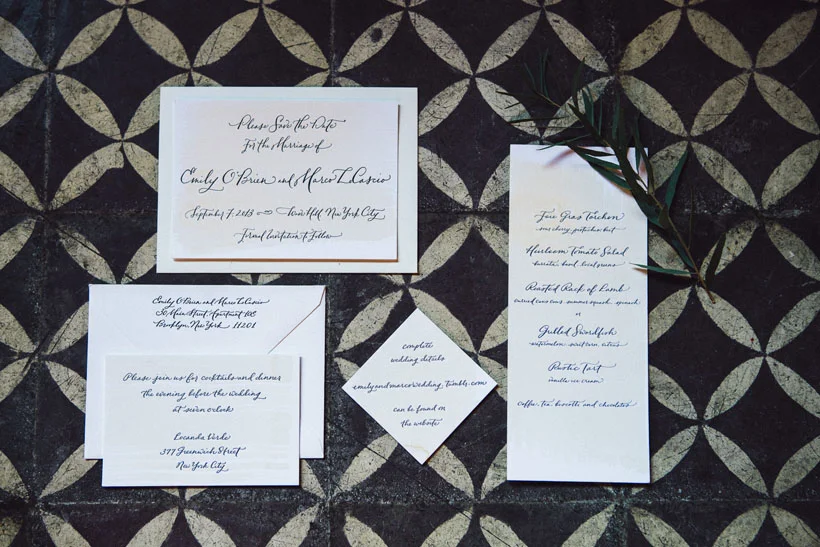 Please Save the Date
For the Marriage of
Emily O'Brien and Marco LoCascio
September 7, 2013 Town Hall New York City
Formal Invitation to Follow
Emily O'Brien and Marco LoCascio
30 Main Street, Apartment
Brooklyn, New York 11201
Please join us for cocktails and dinner
the evening before the wedding
at seven o'clock
Locanda Verde
377 Greenwich Street
New York City
complete
wedding details
emilyandmarcowedding.tumblr.com
can be found on
the website
Foie Gras Torchon
sour cherry, pistachio,
Heirloom Tomato Salad
burrata, basil, local greens
Roasted Rack of Lamb
couscous, summer squash, spinach
or
Grilled Swordfish
watermelon, citrus
Rustic Tart
vanilla ice cream
coffee, tea, biscotti and chocolates